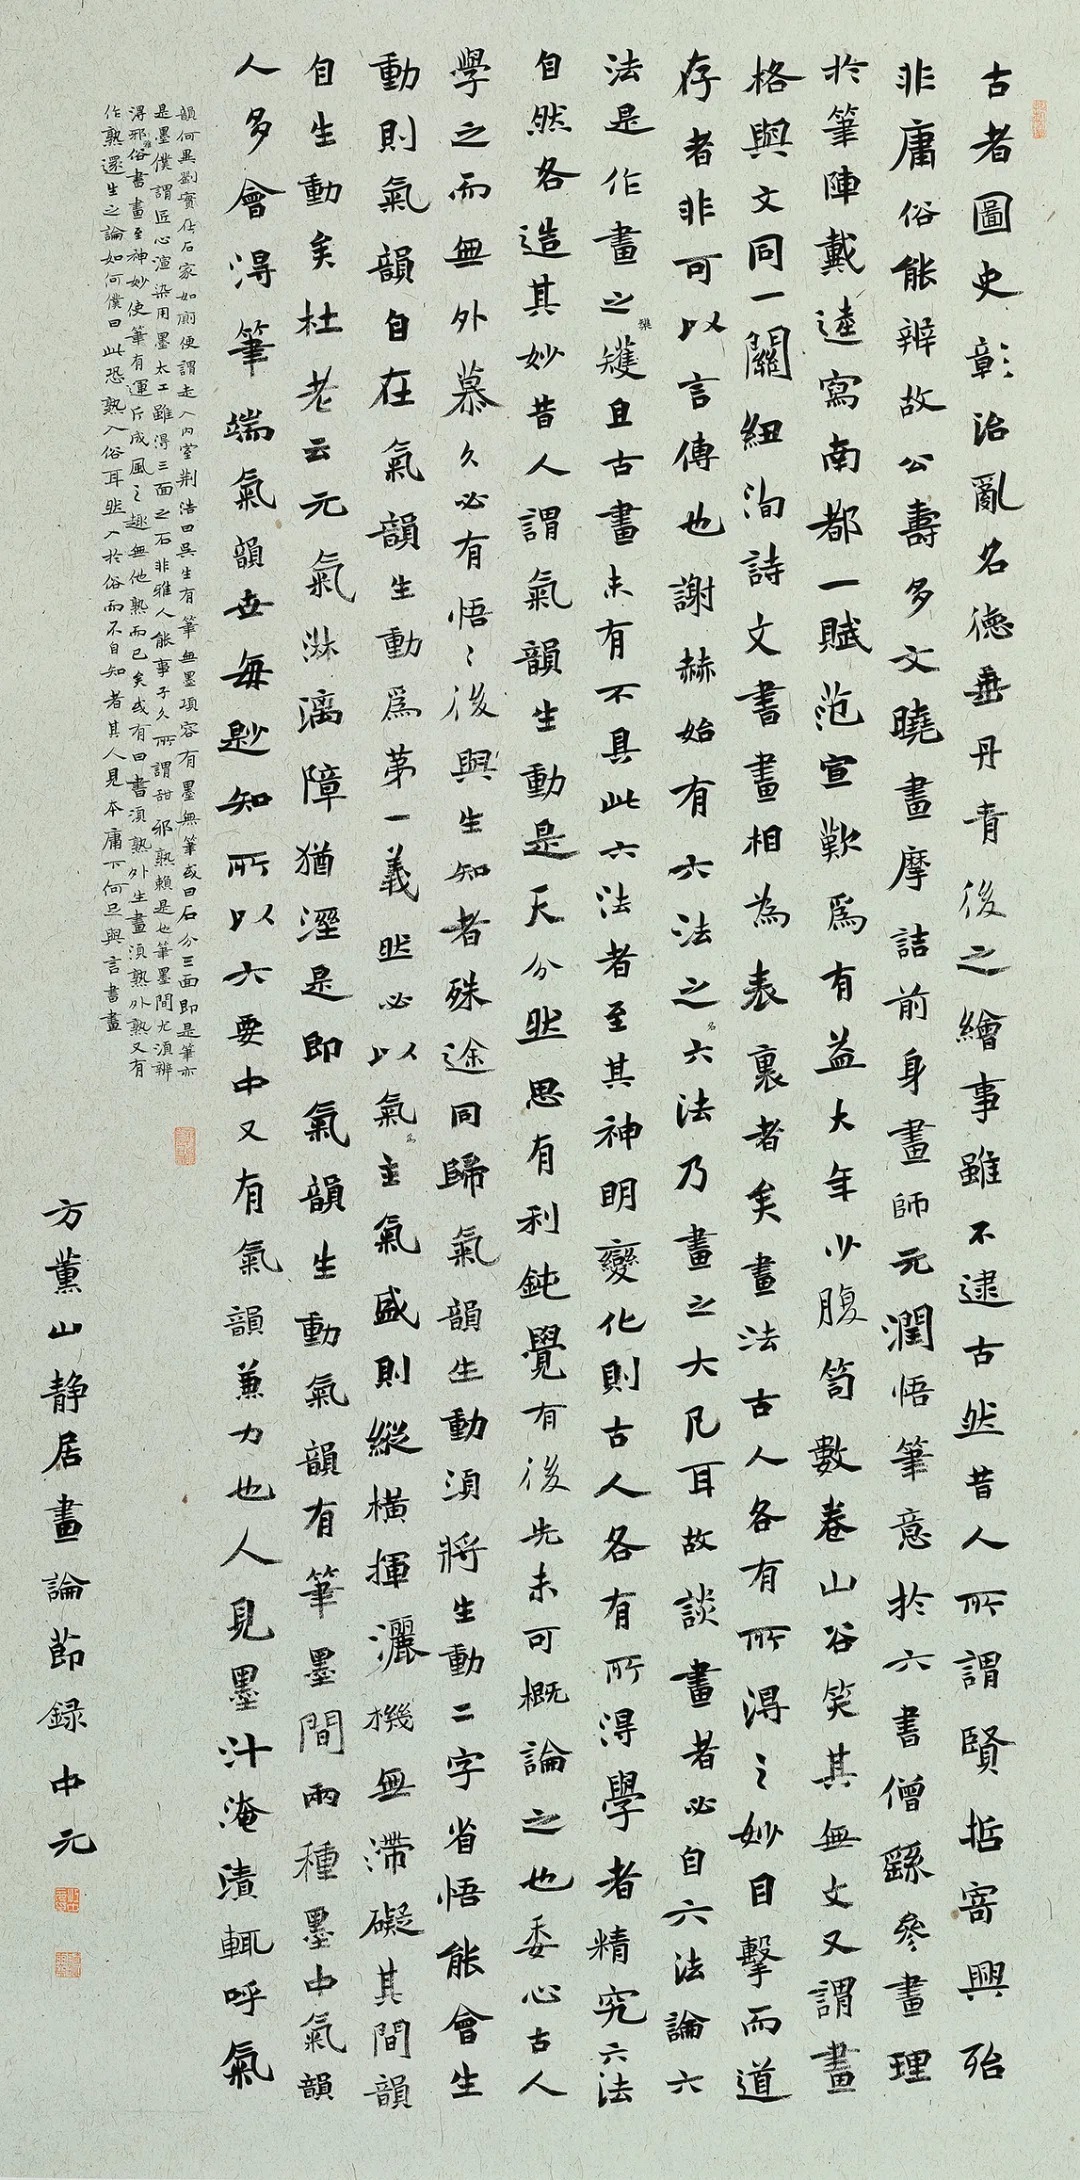 古者圖史彰治亂名德垂丹青後之繪事雖不逮古然昔人所謂賢哲寄興殆
非庸俗能辨故公壽多文曉畫摩詰前身畫師元潤悟筆意於六書僧繇參畫理
於筆陣戴逵寫南都一賦范宣歎為有益大年少腹笥數卷山谷笑其無文又謂畫
格與文同一關紐洵詩文書畫相為表裏者矣畫法古人各有所得之妙目擊而道
存者非可以言傳也謝赫始有六法之名六法乃畫之大凡耳故談畫者必自六法論六
法是作畫之矱且古畫未有不具此六法者至其神明變化則古人各有所得學者精究六法
自然各造其妙昔人謂氣韻生動是天分然思有利鈍覺有後先未可概論之也委心古人
學之而無外慕久必有悟〻後與生知者殊途同歸氣韻生動須將生動二字省悟能會生
動則氣韻自在氣韻生動為第一義然必以氣為主氣盛則縱橫揮灑機無滯礙其間韻
自生動矣杜老云元氣淋漓障猶溼是即氣韻生動氣韻有筆墨間兩種墨中氣韻
人多會得筆端氣韻世每尟知所以六要中又有氣韻兼力也人見墨汁淹漬輒呼氣
韻何異劉實在石家如廁便謂走入內室荊浩曰吳生有筆無墨項容有墨無筆或曰石分三面即是筆亦
是墨僕謂匠心渲染用墨太工雖得三面之石非雅人能事子久所謂甜邪熟賴是也筆墨間尤須辨
得邪俗書畫至神妙使筆有運斤成風之趣無他熟而已矣或有曰書須熟外生畫須熟外熟又有
作熟還生之論如何僕曰此恐熟入俗耳然入於俗而不自知者其人見本庸下何足與言書畫
方薰山靜居畫論節錄中元